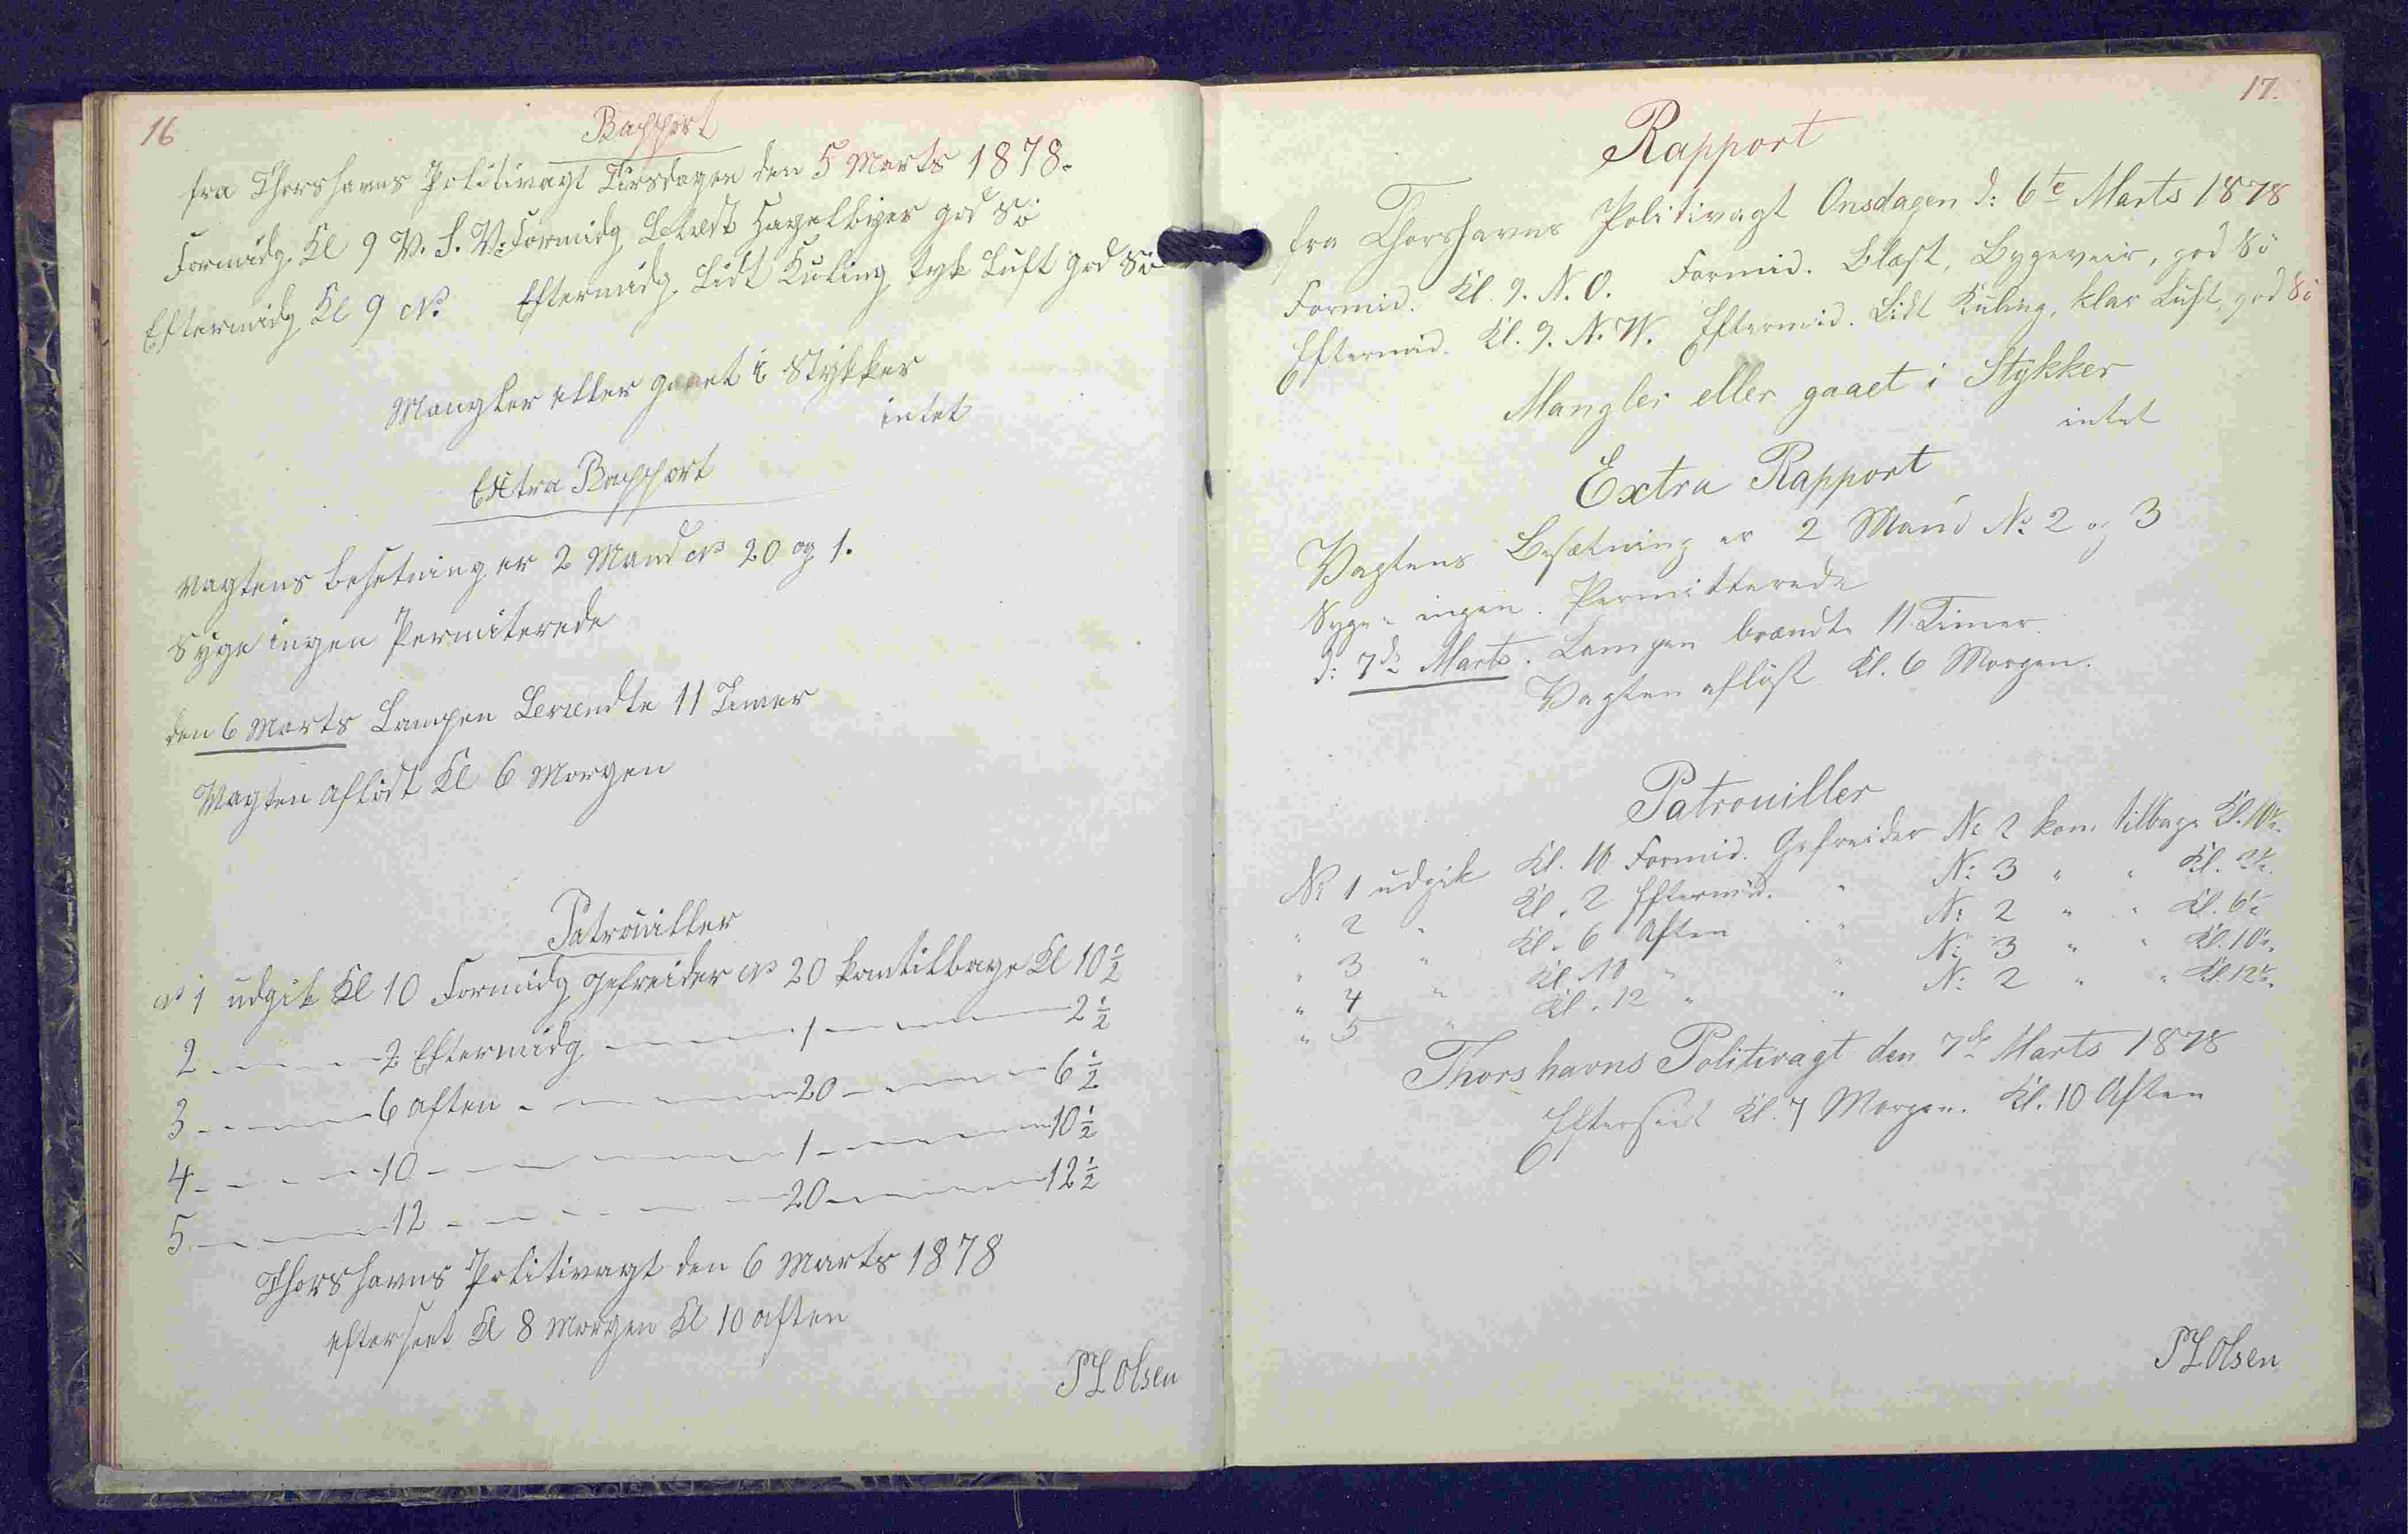 16
Rapport
fra Thorshavns Politivagt Tirsdagen den 5 Marts 1878.
Formidg. Kl 9 V. S. V. Formidg Bleæst Hagelbyer god Sö
Eftermidg Kl 9 N. Eftermidg Lidt Kuling tyk Luft god Sö
Mangler eller gaaet i Stykker
intet
Extra Rapport
Vagtens besetning er 2 Mand No 20 og 1.
Syge ingen Permiterede
den 6 Marts Lampen brændte 11 Timer
Vagten aflöst Kl 6 Morgen
Patrouiller
No 1 udgik Kl 10 Formidg gefreider No 20 kom tilbage Kl 10 1/2
2 - - - - 2 Eftermidg - - - - 1 - - - - 2 1/2
3 - - - - 6 aften - - - - 20 - - - - 6 1/2
4 - - - - 10 - - - - 1 - - - - 10 1/2
5 - - - - 12 - - - - 20 - - - - 12 1/2
Thorshavns Politivagt den 6 Marts 1878
efterseet Kl 8 Morgen Kl 10 aften
P L Olsen
17.
Rapport
fra Thorshavns Politivagt Onsdagen d: 6te Marts 1878
Formid. Kl. 9. N. O. Formid. Blæst, Bygeveir, god Sö
Eftermid. Kl. 9. N. W. Eftermid. Lidt Kuling, klar Luft, god Sö
Mangler eller gaaet i Stykker
intet
Extra Rapport
Vagtens Besætning er 2 Mand No 2 og 3
Syge " ingen. Permitterede
d: 7de Marts. Lampen brændte 11 Timer.
Vagten aflöst Kl. 6 Morgen.
Patrouiller
No 1 udgik Kl. 10 Formid. Gefreider No 2 kom tilbage Kl. 10 1/2.
" 2 " Kl. 2 Eftermid. " No 3 " " Kl. 2 1/2.
" 3 " Kl. 6 Aften " No 2 " " Kl. 6 1/2
" 4 " Kl. 10 " " No 3 " " Kl. 10 1/2.
" 5 " Kl. 12 " " No 2 " " Kl. 12 1/2.
Thorshavns Politivagt den 7de Marts 1878
Efterseet Kl. 7 Morgen. Kl. 10 Aften
P L Olsen